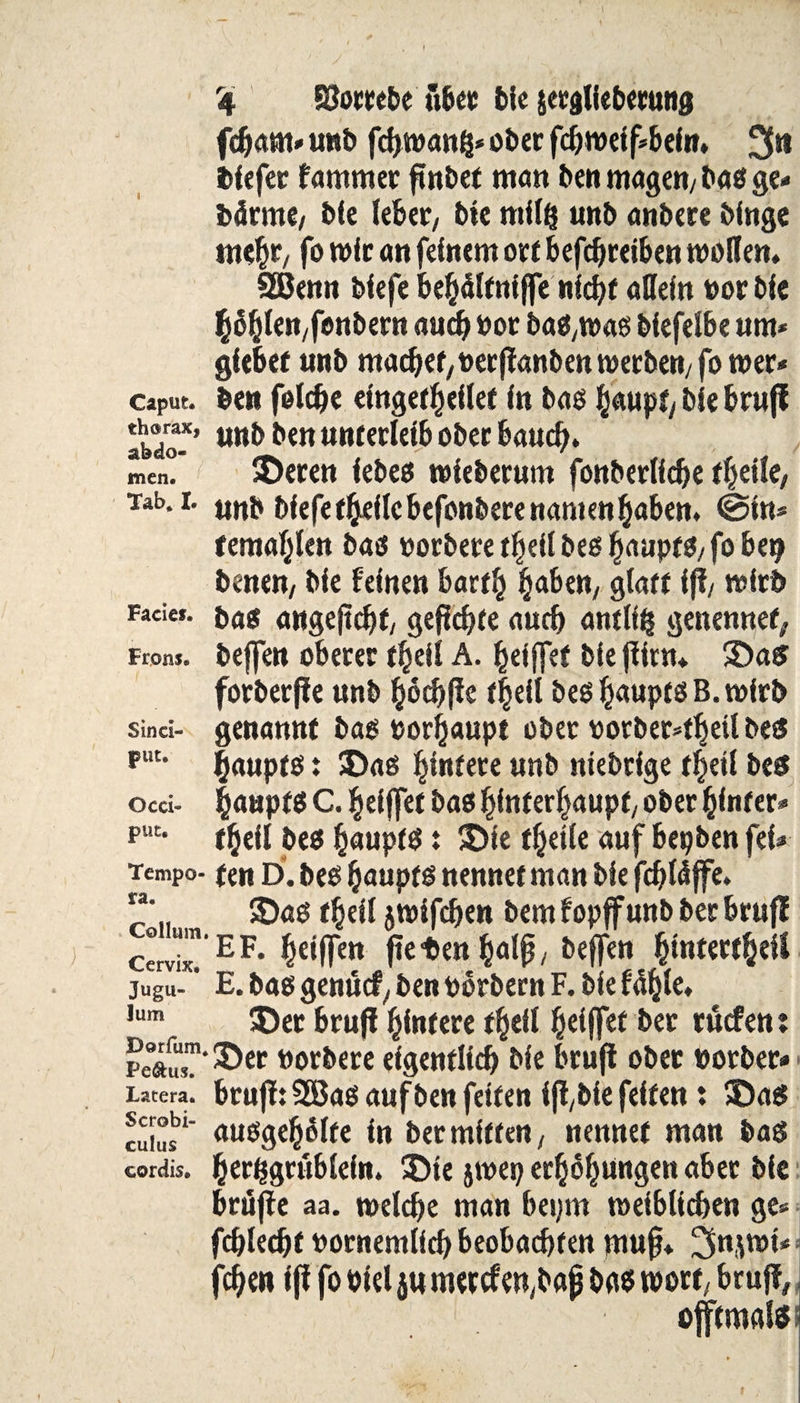 4 Vorrede über die zergliederung
scham- und schwantz- oder schweif-bein. In
dieser kammer findet man den magen, das ge-
därme, die leber, die miltz und andere dinge
mehr, so wir an seinem ort beschreiben wollen.
Wenn diese behältnisse nicht allein vor die
höhlen, sondern auch vor das, was dieselbe um-
giebet und machet, verstanden werden, so wer-
Caput. den solche eingetheilet in das haupt, die brust
thorax, und den unterleib oder bauch.
abdo-
men. Deren iedes wiederum sonderliche theile,
Tab. I. und diese theile besondere namen haben. Sin-
temahlen das vordere theil des haupts, so bey
denen, die keinen barth haben, glatt ist, wird
Facies. das angesicht, gesichte auch antlitz genennet,
Frons. dessen oberer theil A. heisset die stirn. Das
forderste und höchste theil des haupts B. wird
Sinci- genannt das vorhaupt oder vorder-theil des
put. haupts: Das hintere und niedrige theil des
Occi- haupts C. heisset das hinterhaupt, oder hinter-
put. theil des haupts: Die theile auf beyden sei-
Tempo- ten D. des haupts nennet man die schläffe.
ra. Das theil zwischen dem kopff und der brust
Collum. EF. heissen sie den halß, dessen hintertheil
Cervix.
Jugu- E. das genück, den vördern F. die kähle.
lum Der brust hintere theil heisset der rücken:
Dorsum. Der vordere eigentlich die brust oder vorder-
Pectus.
Latera. brust: Was auf den seiten ist, die seiten: Das
Scrobi- ausgehölte in der mitten, nennet man das
culus
cordis. hertzgrüblein. Die zwey erhöhungen aber die
brüste aa. welche man beym weiblichen ge-
schlecht vornemlich beobachten muß. Inzwi-
schen ist so viel zu mercken, daß das wort, brust,
offtmals